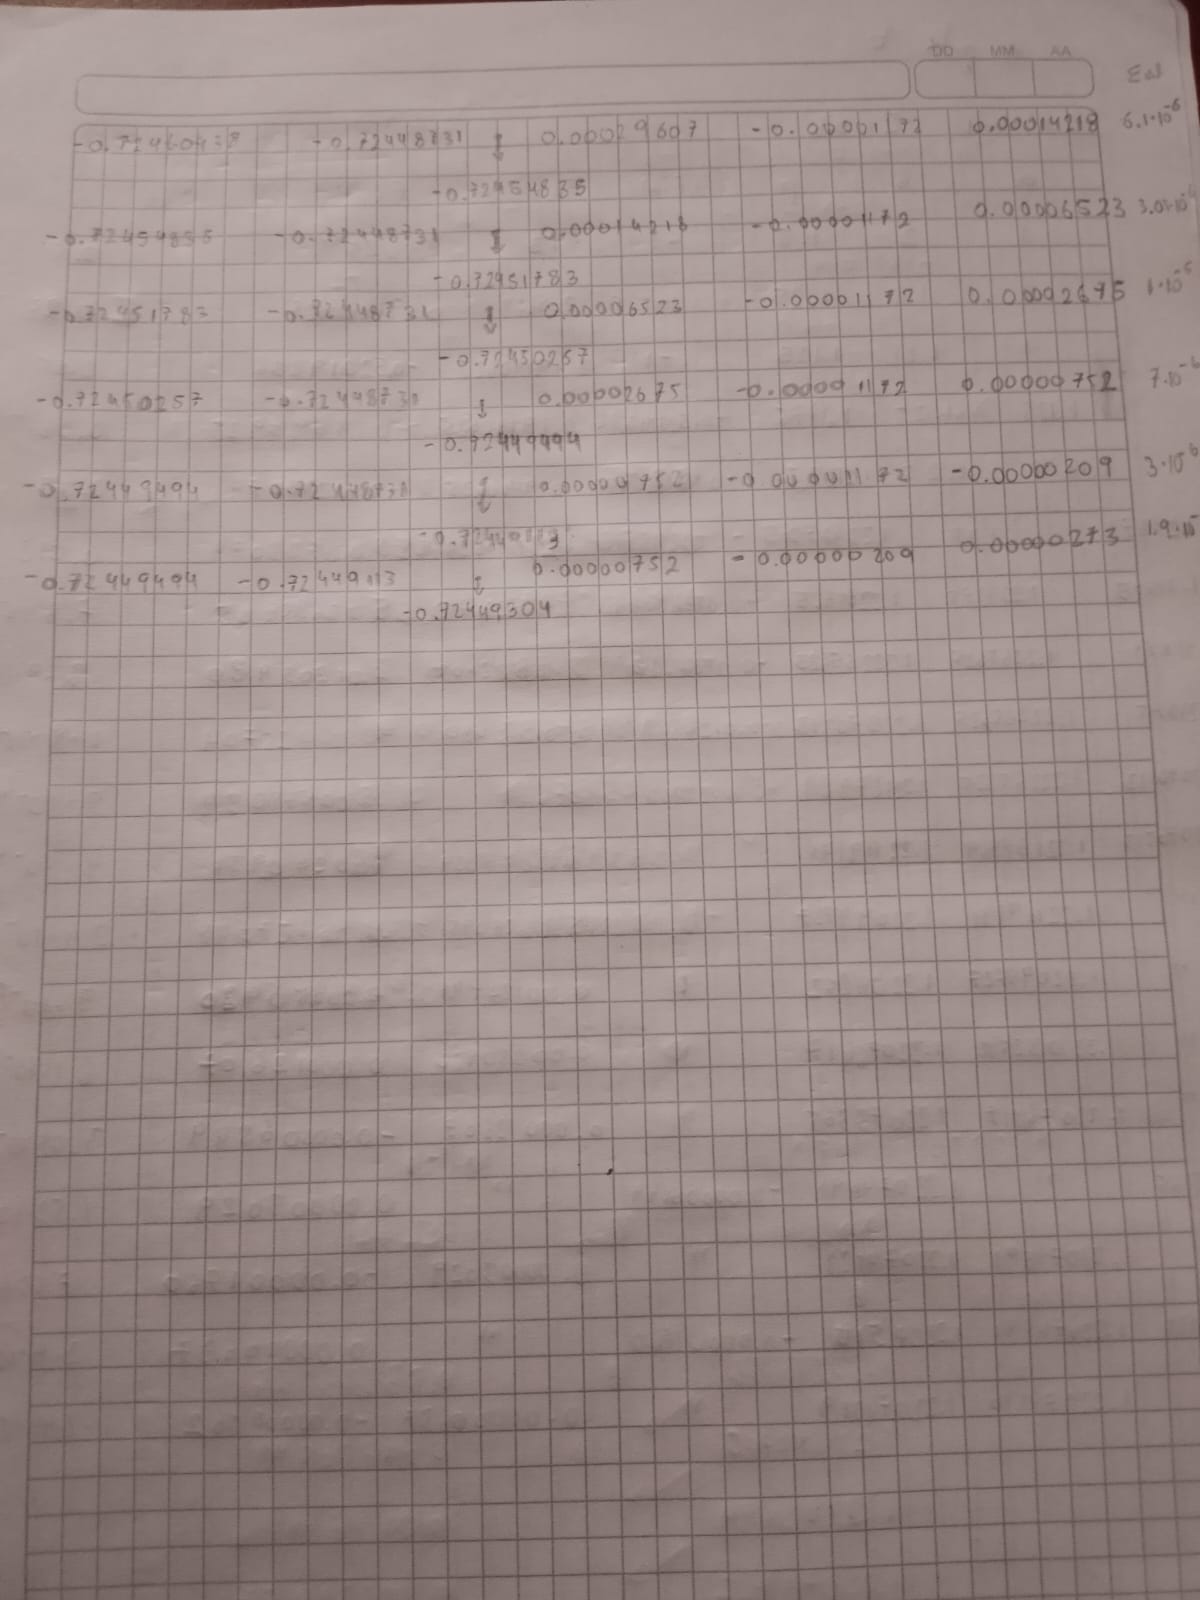 DD MM AA
-0.72448731 ↓ 0.00029607 -0.00001172 0.00014218 6.1·10⁻⁶
-0.72454835
-0.72448731 ↓ 0.00014218 -0.00001172 0.00006523
-0.72451783
-0.72451783 -0.72448731 ↓ 0.00006523 -0.00001172 0.00002675
-0.72450257
-0.72450257 -0.72448731 ↓ 0.00002675 -0.00001172 0.00000752 7·10⁻⁶
-0.72449494
-0.72449494 -0.72448731 ↓ 0.00000752 -0.00001172 -0.00000209 3·10⁻⁶
-0.72449113
-0.72449494 -0.72449113 ↓ 0.00000752 -0.00000209 0.00000273
-0.72449304